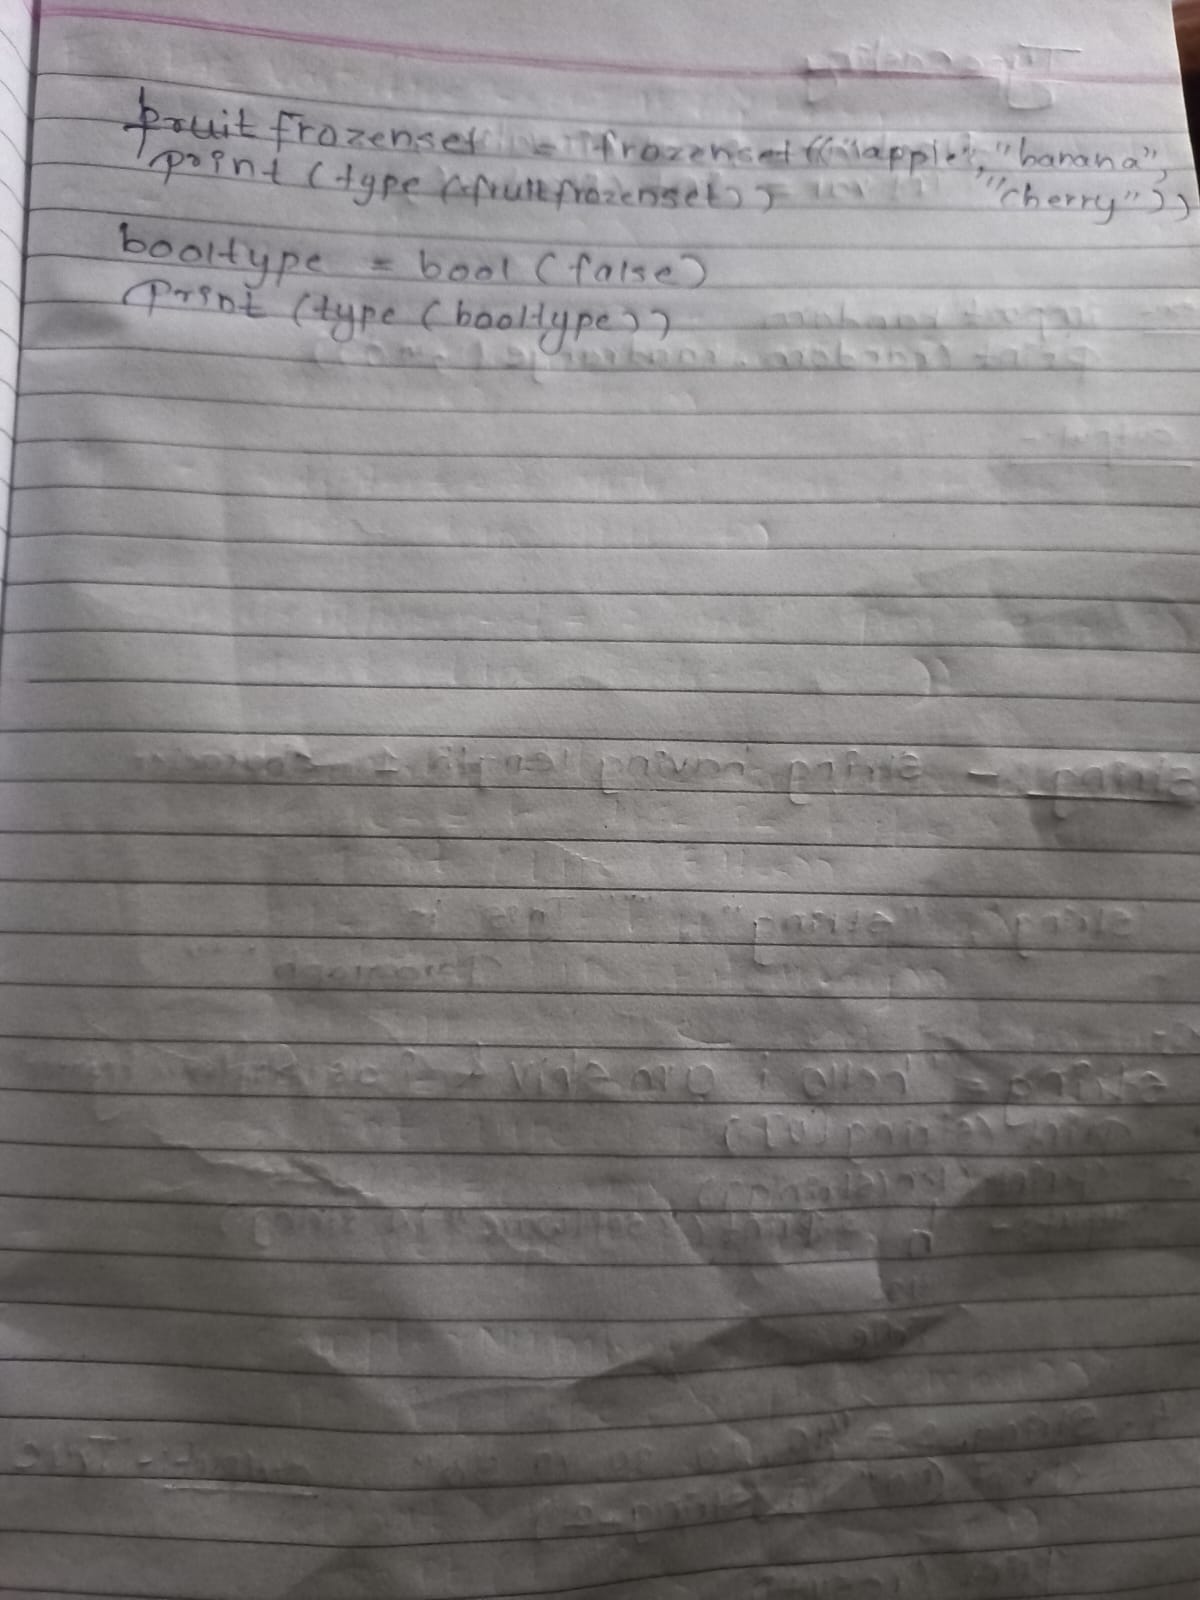 fruit frozenset = frozenset(("apple", "banana",
"cherry"))
print (type (fruitfrozenset))
booltype = bool (false)
print (type (booltype))